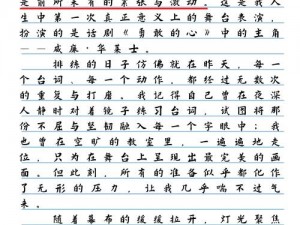 是前所未有的紧张与激动。这是我人
生中第一次真正意义上的舞台表演，
扮演的是话剧《勇敢的心》中的主角
——威廉·华莱士。
排练的日子仿佛就在昨天，每一
个台词、每一个动作，都经过无数次
的重复与打磨。我记得自己曾在夜深
人静时对着镜子练习台词，试图将那
份不屈与坚韧融入每一个字眼中；我
也曾在空旷的教室里，一遍遍地走
位，只为在舞台上呈现出最完美的画
面。但此刻，所有的准备似乎都化作
了无形的压力，让我几乎喘不过气
来。
随着幕布的缓缓拉开，灯光聚焦